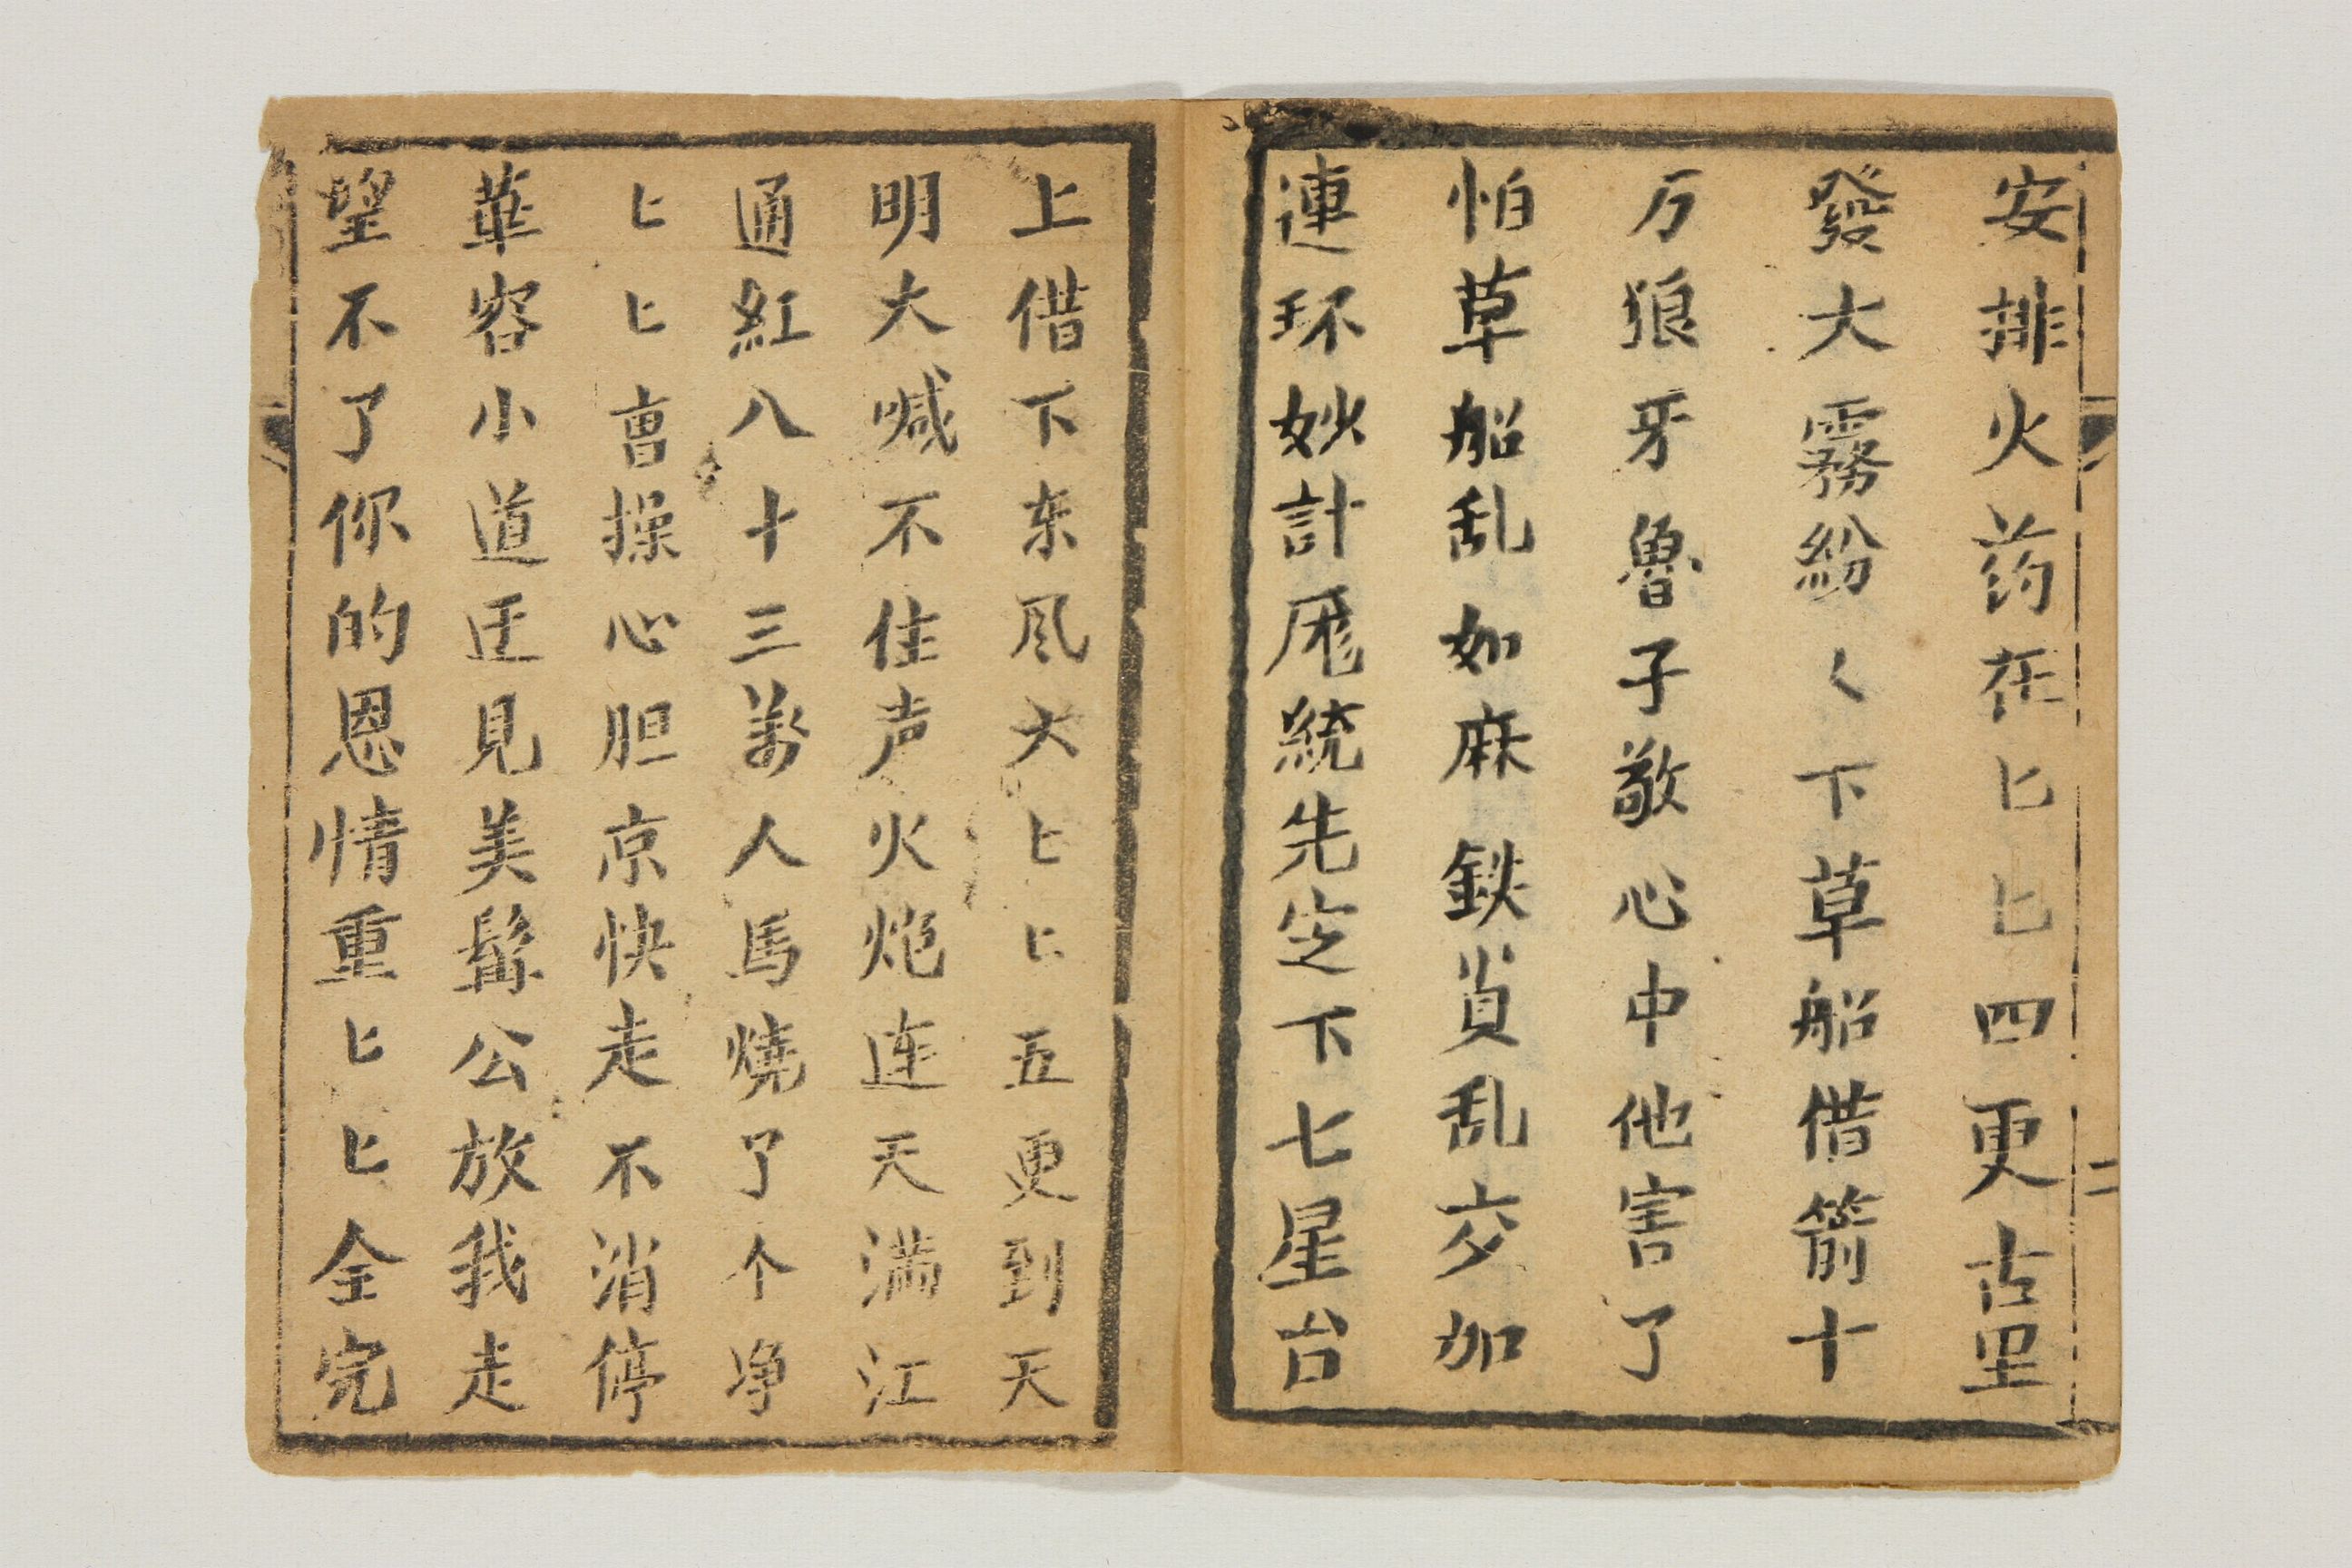 安排火药在匕匕四更古里
發大霧紛〱下草船借箭十
万狼牙魯子敬心中他害了
怕草船乱如麻鉄貟乱交加
連环妙計庞統先定下七星台
上借下东风大匕匕五更到天
明大喊不住声火炮连天满江
通紅八十三萬人馬燒了个净
匕匕曺操心胆京快走不消停
華容小道迋見美髯公放我走
望不了你的恩情重匕匕全完
二